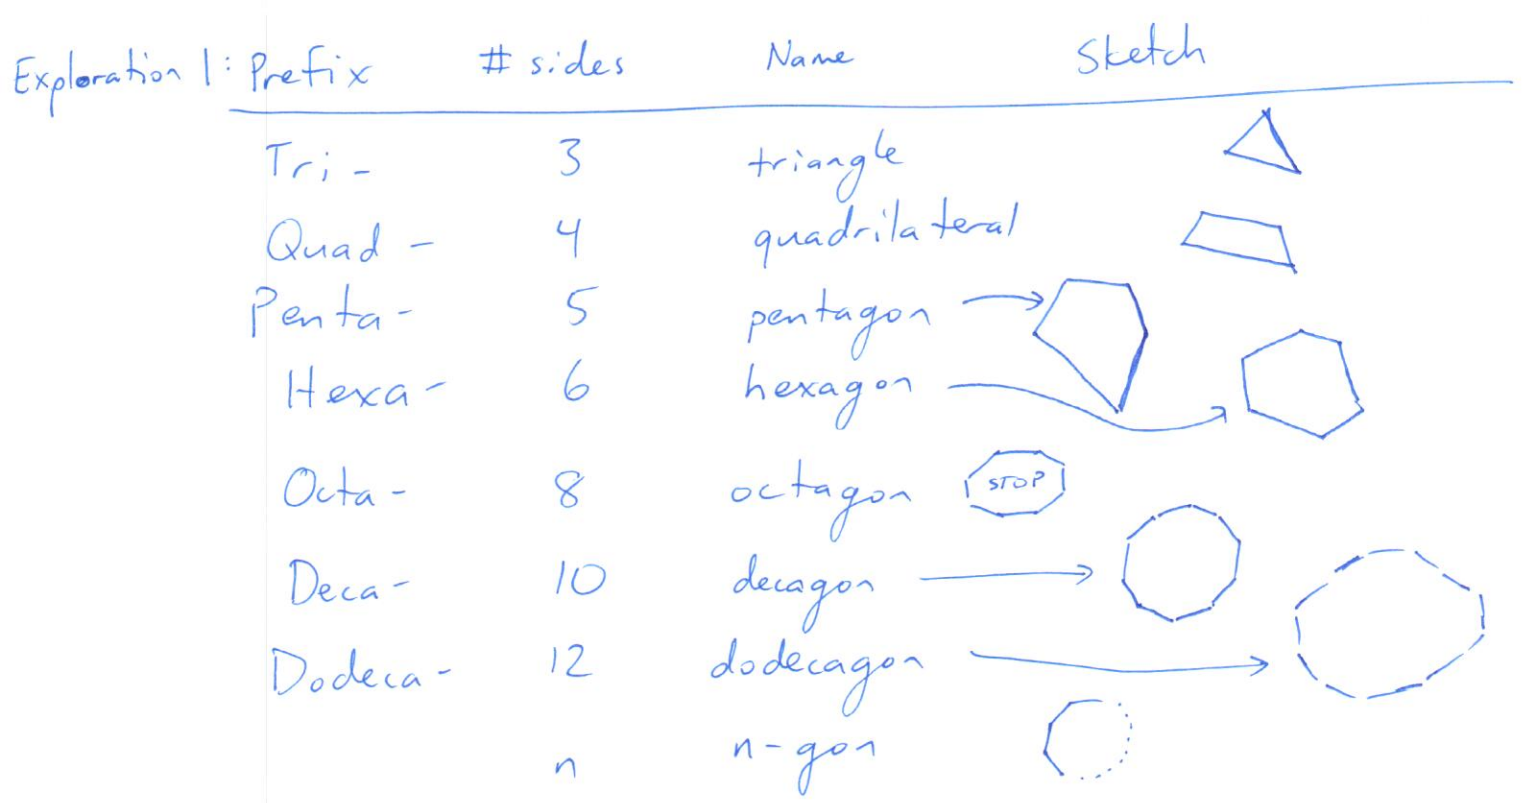 Exploration 1: Prefix # sides Name Sketch
Tri- 3 triangle
Quad- 4 quadrilateral
Penta- 5 pentagon
Hexa- 6 hexagon
Octa- 8 octagon STOP
Deca- 10 decagon
Dodeca- 12 dodecagon
n n-gon